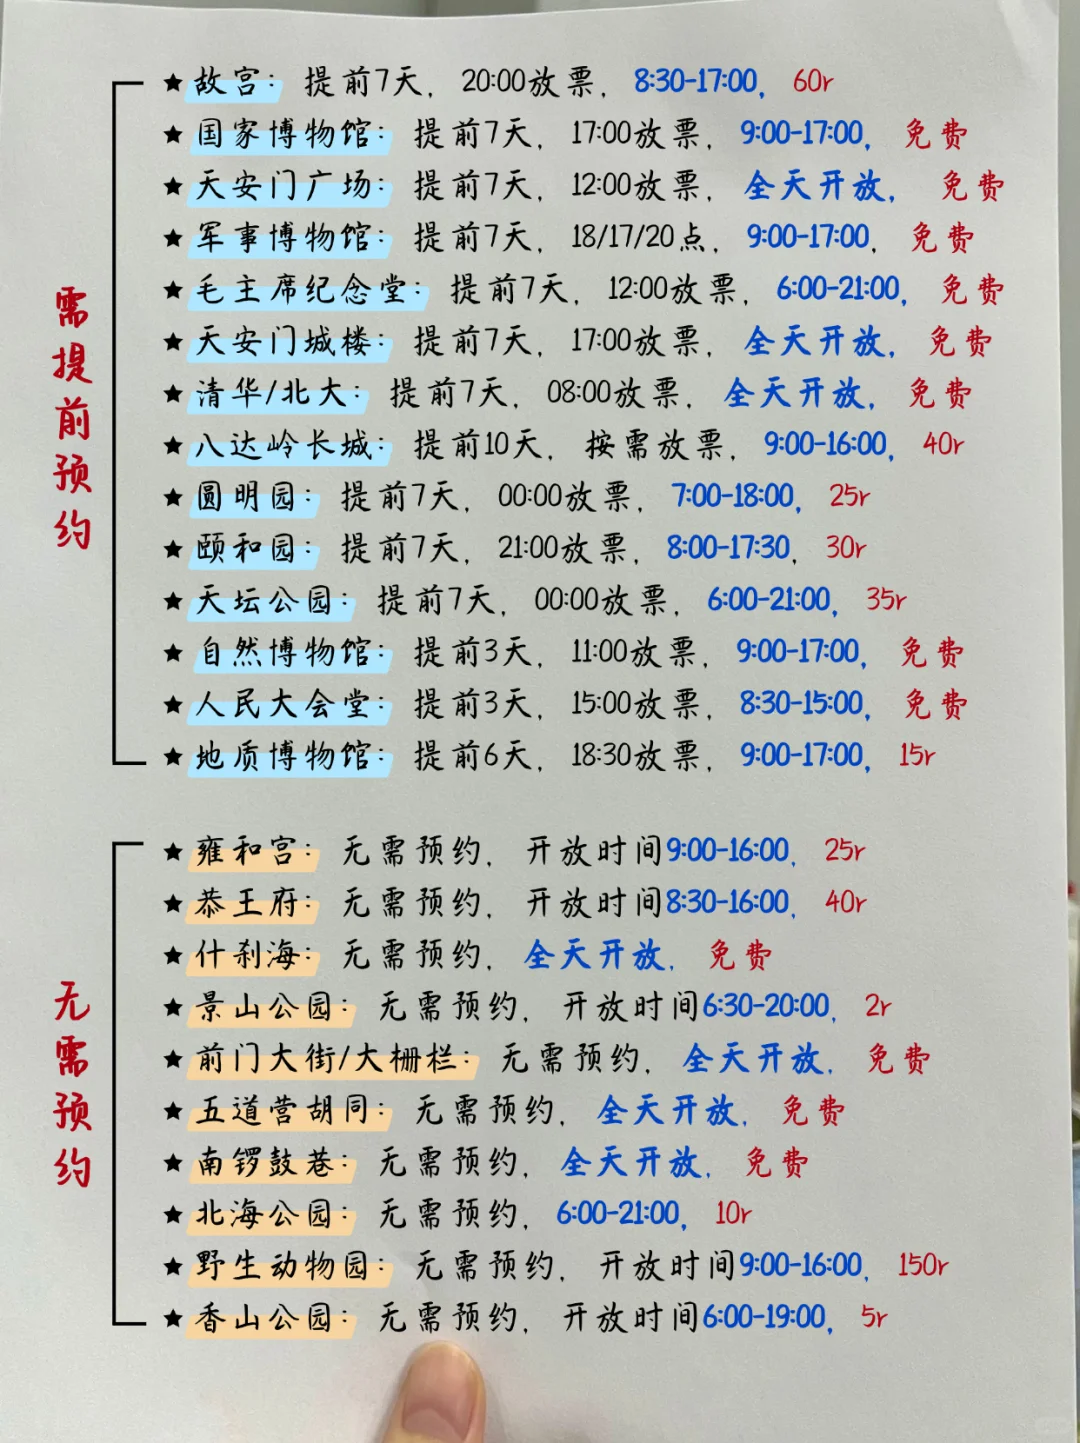 需提前预约
★ 故宫：提前7天，20:00放票，8:30-17:00，60r
★ 国家博物馆：提前7天，17:00放票，9:00-17:00，免费
★ 天安门广场：提前7天，12:00放票，全天开放，免费
★ 军事博物馆：提前7天，18/17/20点，9:00-17:00，免费
★ 毛主席纪念堂：提前7天，12:00放票，6:00-21:00，免费
★ 天安门城楼：提前7天，17:00放票，全天开放，免费
★ 清华/北大：提前7天，08:00放票，全天开放，免费
★ 八达岭长城：提前10天，按需放票，9:00-16:00，40r
★ 圆明园：提前7天，00:00放票，7:00-18:00，25r
★ 颐和园：提前7天，21:00放票，8:00-17:30，30r
★ 天坛公园：提前7天，00:00放票，6:00-21:00，35r
★ 自然博物馆：提前3天，11:00放票，9:00-17:00，免费
★ 人民大会堂：提前3天，15:00放票，8:30-15:00，免费
★ 地质博物馆：提前6天，18:30放票，9:00-17:00，15r
无需预约
★ 雍和宫：无需预约，开放时间9:00-16:00，25r
★ 恭王府：无需预约，开放时间8:30-16:00，40r
★ 什刹海：无需预约，全天开放，免费
★ 景山公园：无需预约，开放时间6:30-20:00，2r
★ 前门大街/大栅栏：无需预约，全天开放，免费
★ 五道营胡同：无需预约，全天开放，免费
★ 南锣鼓巷：无需预约，全天开放，免费
★ 北海公园：无需预约，6:00-21:00，10r
★ 野生动物园：无需预约，开放时间9:00-16:00，150r
★ 香山公园：无需预约，开放时间6:00-19:00，5r